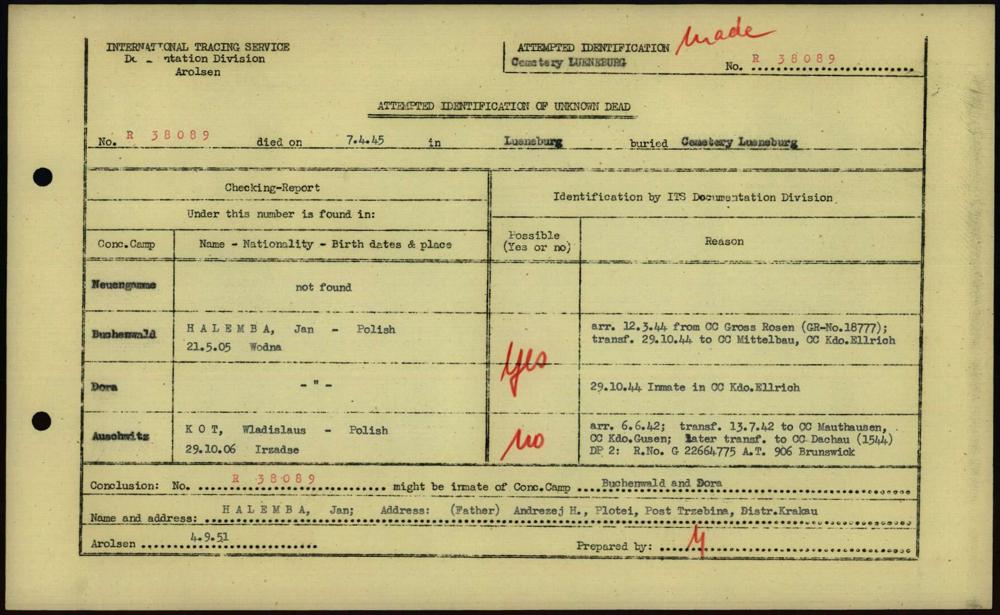 INTERNATIONAL TRACING SERVICE
Documentation Division
Arolsen
ATTEMPTED IDENTIFICATION made
Cemetery LUENEBURG
No. R 38089
ATTEMPTED IDENTIFICATION OF UNKNOWN DEAD
No. R 38089 died on 7.4.45 in Luensburg buried Cemetery Luensburg
Checking-Report
Under this number is found in:
Identification by ITS Documentation Division
Conc.Camp Name - Nationality - Birth dates & place Possible (Yes or no) Reason
Neuengamme not found
Buchenwald HALEMBA, Jan - Polish
21.5.05 Wodna
yes
arr. 12.3.44 from CC Gross Rosen (GR-No.18777);
transf. 29.10.44 to CC Mittelbau, CC Kdo.Ellrich
Dora - " - 29.10.44 Inmate in CC Kdo.Ellrich
Auschwitz KOT, Wladislaus - Polish
29.10.06 Irzadse
no
arr. 6.6.42; transf. 13.7.42 to CC Mauthausen,
CC Kdo.Gusen; later transf. to CC Dachau (1544)
DP 2: R.No. G 22664775 A.T. 906 Brunswick
Conclusion: No. R 38089 might be inmate of Conc.Camp Buchenwald and Dora
Name and address: HALEMBA, Jan; Address: (Father) Andrezej H., Plotei, Post Trzebina, Distr.Krakau
Arolsen 4.9.51 Prepared by: